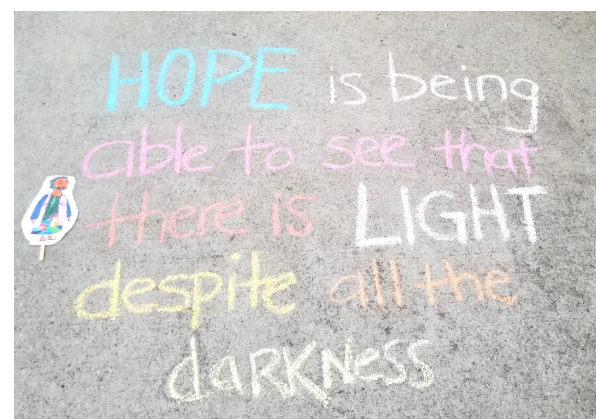 HOPE is being
able to see that
there is LIGHT
despite all the
daRKNess